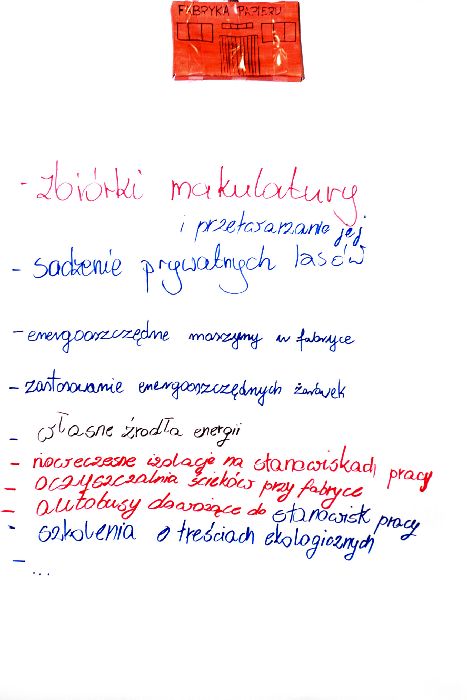 FABRYKA PAPIERU
- zbiórki makulatury
i przetwarzanie jej
- sadzenie prywatnych lasów
- energooszczędne maszyny w fabryce
- zastosowanie energooszczędnych żarówek
- własne źrodła energii
- nowoczesne izolacje na stanowiskach pracy
- oczyszczalnia ścieków przy fabryce
- autobusy dowożące do stanowisk pracy
- szkolenia o treściach ekologicznych
- ...